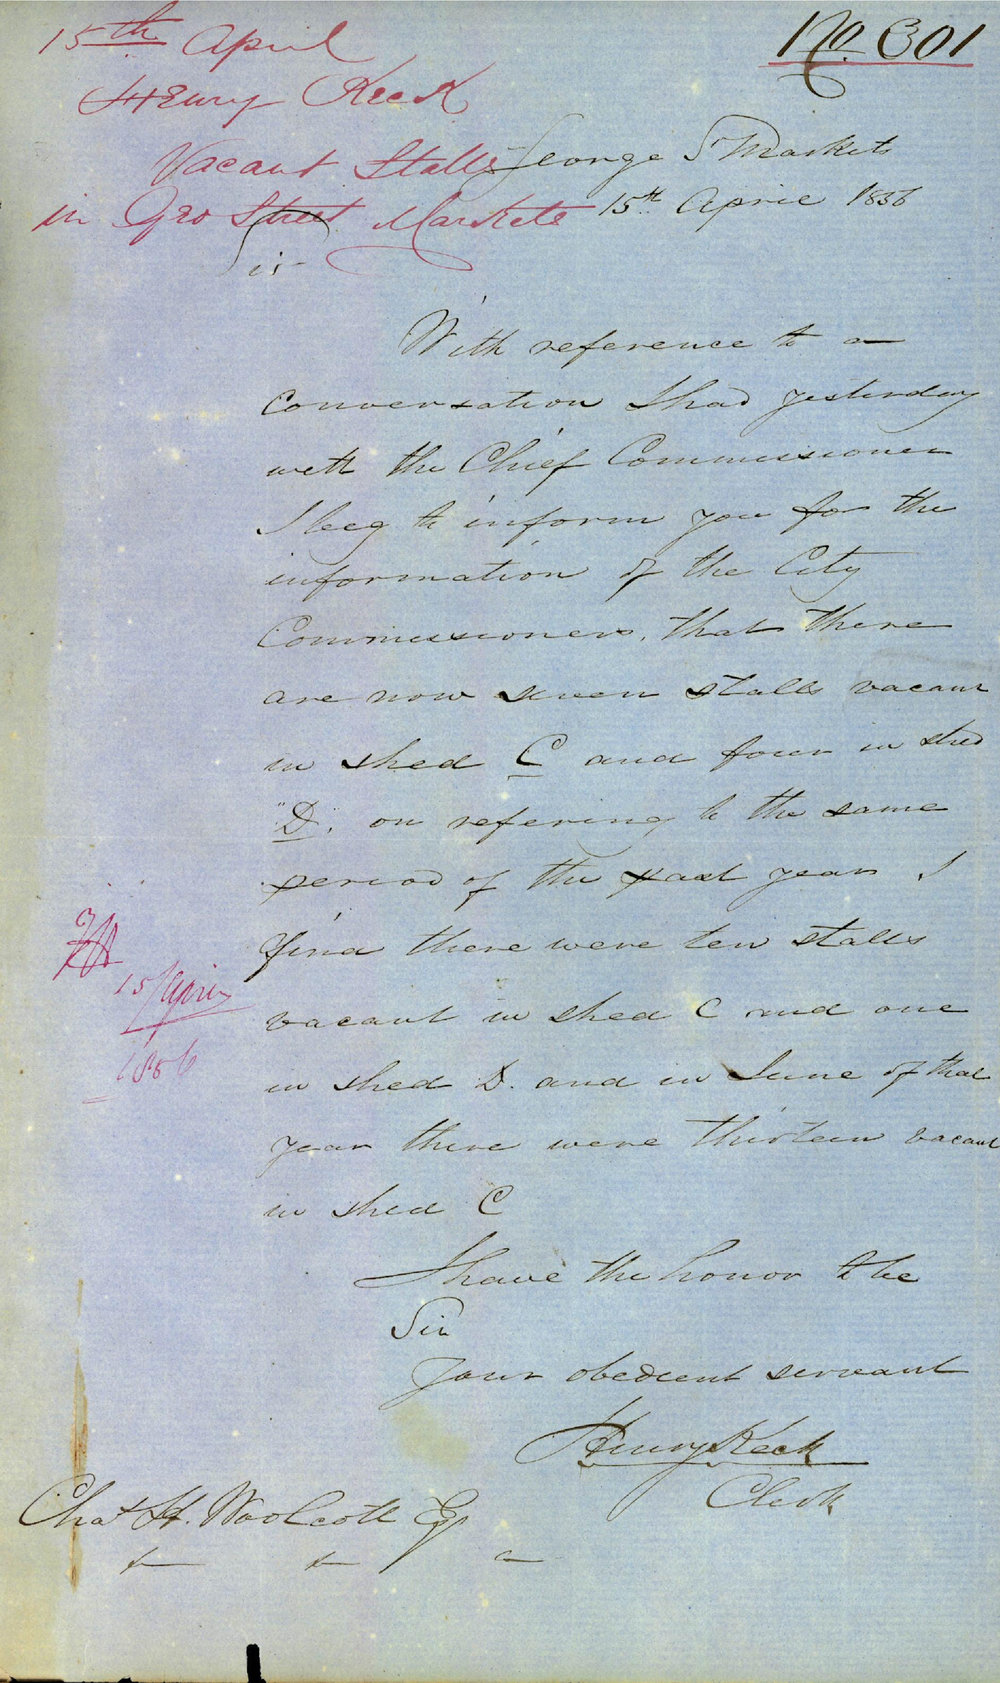 No. 301
15th April
Henry Keck
Vacant Stalls
in Geo Street Markets
George St Markets
15th April 1856
Sir
With reference to a
conversation I had yesterday
with the Chief Commissioner
I beg to inform you for the
information of the City
Commissioners, that there
are now seven stalls vacant
in shed C and four in shed
"D". on refering to the same
period of the past year I
find there were ten stalls
vacant in shed C and one
in shed D. and in June of that
year there were thirteen vacant
in shed C
I have the honor to be
Sir
Your obedient servant
Henry Keck
Clerk
Chas H. Woolcott Esq
15/April
1856